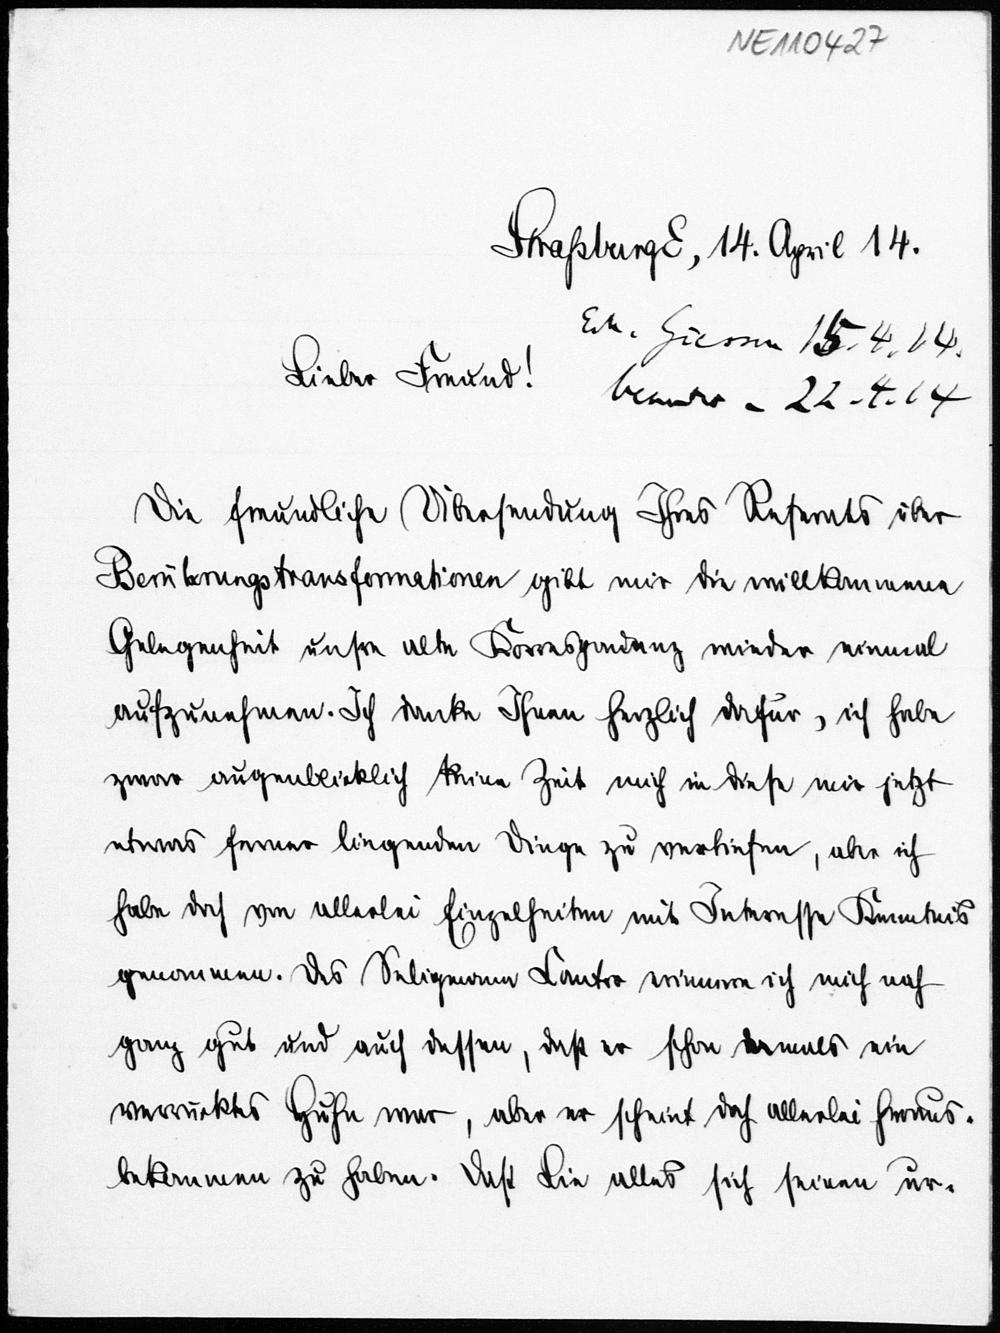 NE110427
Straßburg E, 14. April 14.
Erh. Giessen 15.4.14.
Lieber Freund!
beantw. – 22.4.14
Die freundliche Übersendung Ihres Referats über
Berührungstransformationen gibt mir die willkommene
Gelegenheit unsre alte Korrespondenz wieder einmal
aufzunehmen. Ich danke Ihnen herzlich dafür, ich habe
zwar augenblicklich keine Zeit mich in diese mir jetzt
etwas ferner liegenden Dinge zu vertiefen, aber ich
habe doch von allerlei Einzelheiten mit Interesse Kenntnis
genommen. Des Seligmann Kantor erinnere ich mich noch
ganz gut und auch dessen, daß er schon damals ein
verrücktes Huhn war, aber er scheint doch allerlei heraus-
bekommen zu haben. Daß Lie alles sich seinen ur-